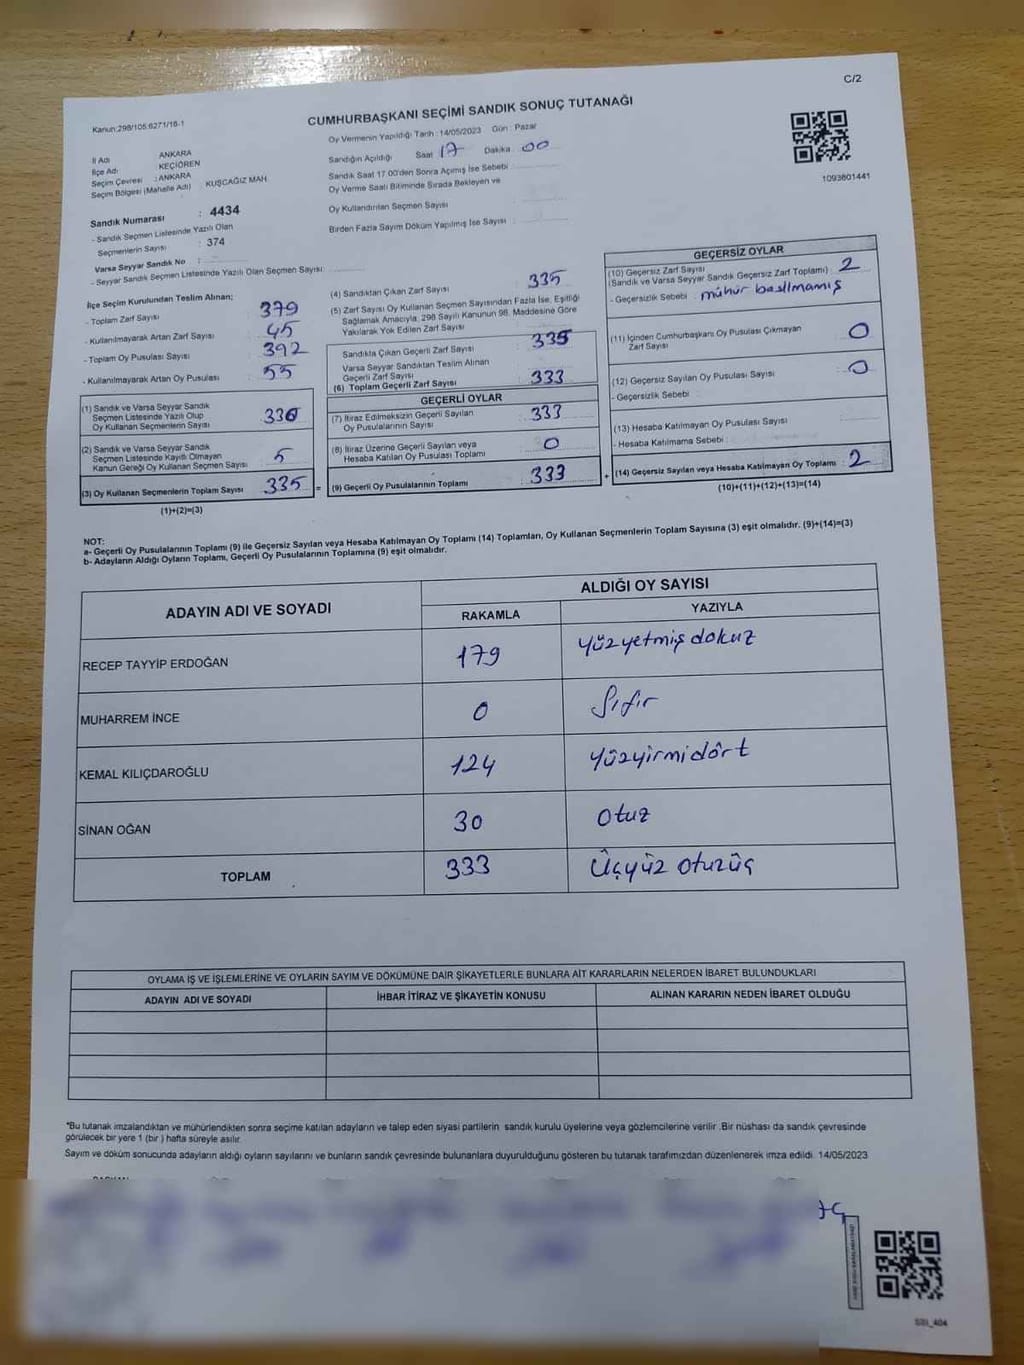 C/2
Kanun:298/105;6271/16-1
CUMHURBAŞKANI SEÇİMİ SANDIK SONUÇ TUTANAĞI
Oy Vermenin Yapıldığı Tarih : 14/05/2023 Gün : Pazar
İl Adı ANKARA
İlçe Adı KEÇİÖREN
Seçim Çevresi : ANKARA
Seçim Bölgesi (Mahalle Adı) : KUŞCAĞIZ MAH.
Sandığın Açıldığı Saat 17 Dakika : 00
Sandık Saat 17.00'den Sonra Açımış İse Sebebi
Oy Verme Saati Bitiminde Sırada Bekleyen ve
Oy Kullandırılan Seçmen Sayısı
Birden Fazla Sayım Döküm Yapılmış İse Sayısı :
1093601441
Sandık Numarası : 4434
- Sandık Seçmen Listesinde Yazılı Olan
Seçmenlerin Sayısı : 374
Varsa Seyyar Sandık No :
- Seyyar Sandık Seçmen Listesinde Yazılı Olan Seçmen Sayısı:
İlçe Seçim Kurulundan Teslim Alınan;
- Toplam Zarf Sayısı 379
- Kullanılmayarak Artan Zarf Sayısı 45
- Toplam Oy Pusulası Sayısı 392
- Kullanılmayarak Artan Oy Pusulası 55
(1) Sandık ve Varsa Seyyar Sandık
Seçmen Listesinde Yazılı Olup
Oy Kullanan Seçmenlerin Sayısı 330
(2) Sandık ve Varsa Seyyar Sandık
Seçmen Listesinde Kayıtlı Olmayan
Kanun Gereği Oy Kullanan Seçmen Sayısı 5
(3) Oy Kullanan Seçmenlerin Toplam Sayısı 335 =
(1)+(2)=(3)
(4) Sandıktan Çıkan Zarf Sayısı 335
(5) Zarf Sayısı Oy Kullanan Seçmen Sayısından Fazla İse, Eşitliği
Sağlamak Amacıyla, 298 Sayılı Kanunun 98. Maddesine Göre
Yakılarak Yok Edilen Zarf Sayısı
Sandıkta Çıkan Geçerli Zarf Sayısı 335
Varsa Seyyar Sandıktan Teslim Alınan
Geçerli Zarf Sayısı
(6) Toplam Geçerli Zarf Sayısı 333
GEÇERLİ OYLAR
(7) İtiraz Edilmeksizin Geçerli Sayılan
Oy Pusulalarının Sayısı 333
(8) İtiraz Üzerine Geçerli Sayılan veya
Hesaba Katılan Oy Pusulası Toplamı 0
(9) Geçerli Oy Pusulalarının Toplamı 333 +
GEÇERSİZ OYLAR
(10) Geçersiz Zarf Sayısı
(Sandık ve Varsa Seyyar Sandık Geçersiz Zarf Toplamı) : 2
- Geçersizlik Sebebi : mühür basılmamış
(11) İçinden Cumhurbaşkanı Oy Pusulası Çıkmayan
Zarf Sayısı 0
(12) Geçersiz Sayılan Oy Pusulası Sayısı : 0
- Geçersizlik Sebebi
(13) Hesaba Katılmayan Oy Pusulası Sayısı
- Hesaba Katılmama Sebebi :
(14) Geçersiz Sayılan veya Hesaba Katılmayan Oy Toplamı : 2
(10)+(11)+(12)+(13)=(14)
NOT:
a- Geçerli Oy Pusulalarının Toplamı (9) ile Geçersiz Sayılan veya Hesaba Katılmayan Oy Toplamı (14) Toplamları, Oy Kullanan Seçmenlerin Toplam Sayısına (3) eşit olmalıdır. (9)+(14)=(3)
b- Adayların Aldığı Oyların Toplamı, Geçerli Oy Pusulalarının Toplamına (9) eşit olmalıdır.
ADAYIN ADI VE SOYADI ALDIĞI OY SAYISI
RAKAMLA YAZIYLA
RECEP TAYYİP ERDOĞAN 179 Yüzyetmiş dokuz
MUHARREM İNCE 0 Sıfır
KEMAL KILIÇDAROĞLU 124 Yüzyirmi dört
SİNAN OĞAN 30 Otuz
TOPLAM 333 Üçyüz otuzüç
OYLAMA İŞ VE İŞLEMLERİNE VE OYLARIN SAYIM VE DÖKÜMÜNE DAİR ŞİKAYETLERLE BUNLARA AİT KARARLARIN NELERDEN İBARET BULUNDUKLARI
ADAYIN ADI VE SOYADI İHBAR İTİRAZ VE ŞİKAYETİN KONUSU ALINAN KARARIN NEDEN İBARET OLDUĞU
*Bu tutanak imzalandıktan ve mühürlendikten sonra seçime katılan adayların ve talep eden siyasi partilerin sandık kurulu üyelerine veya gözlemcilerine verilir .Bir nüshası da sandık çevresinde
görülecek bir yere 1 (bir ) hafta süreyle asılır.
Sayım ve döküm sonucunda adayların aldığı oyların sayılarını ve bunların sandık çevresinde bulunanlara duyurulduğunu gösteren bu tutanak tarafımızdan düzenlenerek imza edildi. 14/05/2023